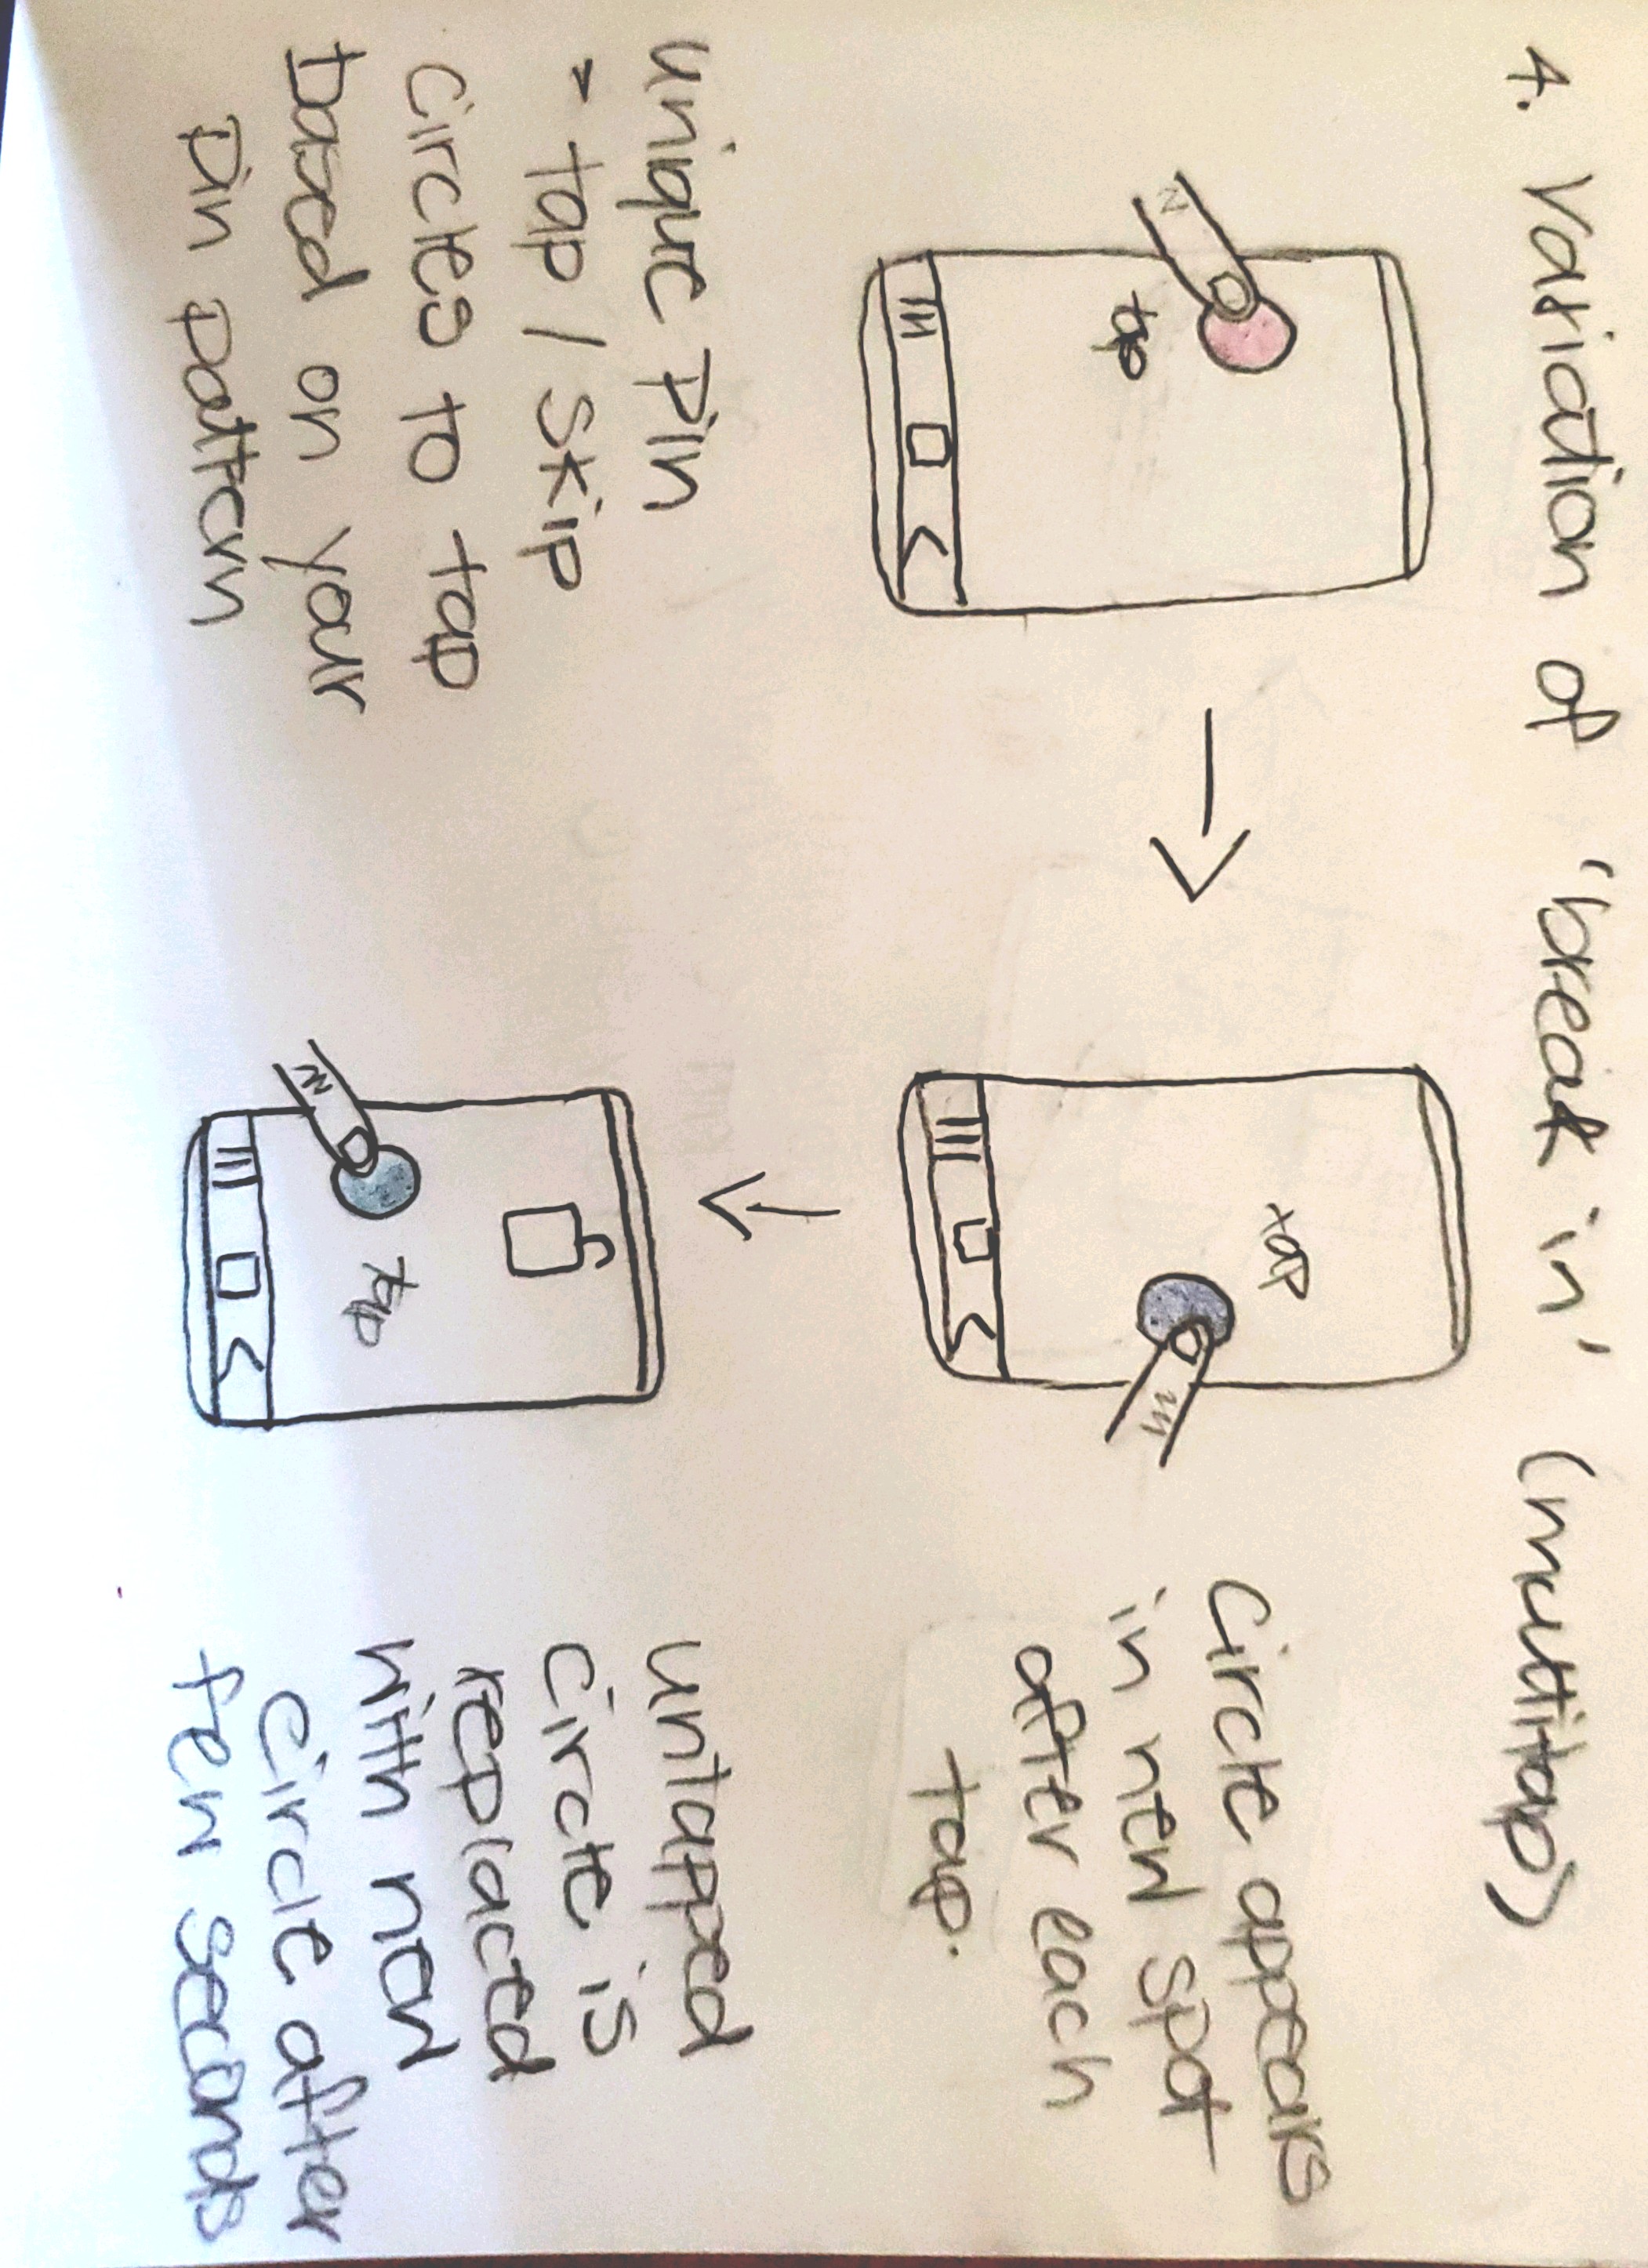 4. Variation of 'break in' (multitap)
tap
tap
Circle appears
in new spot
after each
tap.
unique pin
> tap / skip
circles to tap
based on your
pin pattern
tap
untapped
circle is
replaced
with new
circle after
few seconds